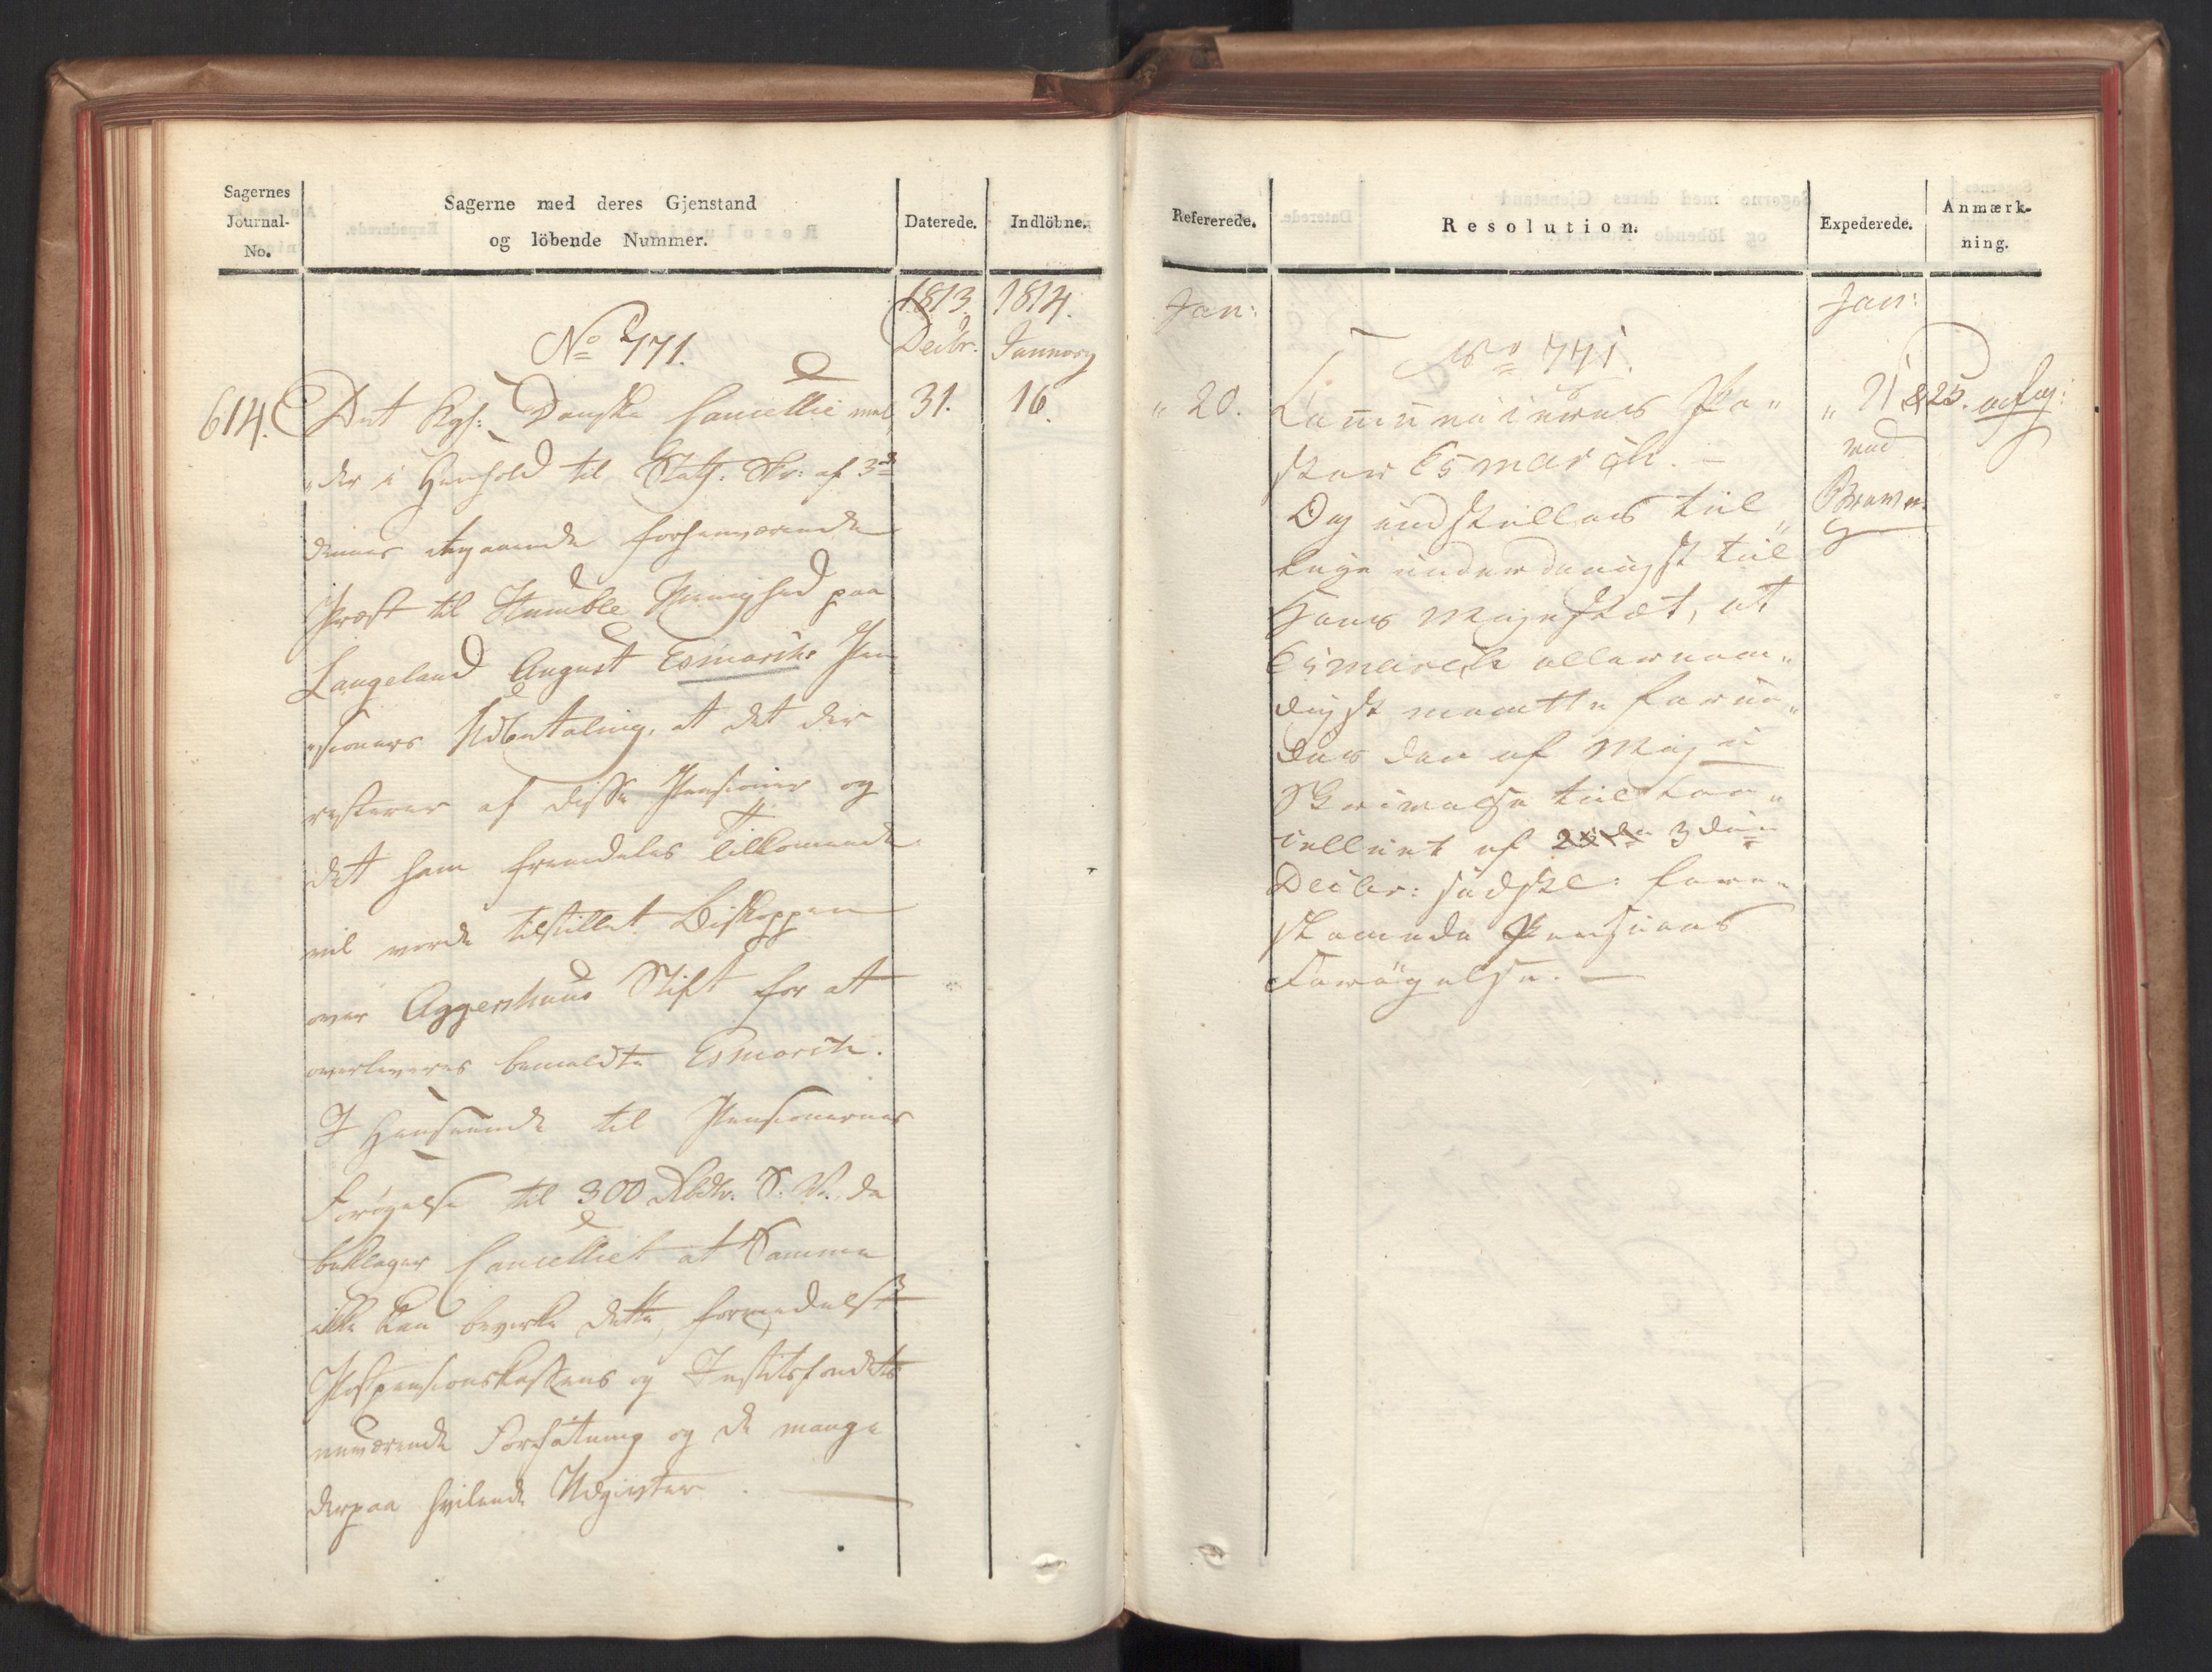 Sagernes
Journal-
No.
Sagerne med deres Gjenstand
og löbende Nummer.
Daterede.
Indlöbne.
1813.
Decbr.
1814.
January
No 771.
614.
Det Kgl. Danske Cancellie mel,,
31.
16.
,,der i Henhold til Stath. Skr: af 3de
dennes angaaende forhenværende
Præst til Humble Menighed paa
Langeland August Esmarchs Pen
,,sioners Udbetaling, at det der
resterer af disse Pensioner og
det ham fremdeles Tilkommende
vil vorde tilstillet Biskoppen
over Aggershuus Stift for at
overleveres bemeldte Esmarch.
I Henseende til Pensionernes
Forøgelse til 300 Rbdlr. S. V. da
beklager Cancelliet at Samme
ikke kan bevirke dette, formedelst
Postpensionskassens og
nuværende Forfatning og de mange
derpaa hvilende Udgivter.
Refererede.
Resolution.
Expederede.
Anmærk-
ning.
Jan:
Jan:
No 771.
,, 20.
Communiceres Pa,,
,, 21 & 25.
ster Esmarch. –
med
Og indstilles til,,
lige underdanigst til
Hans Majestæt, at
Esmarch allernaa,,
digst maatte forun,,
des den af Mig i
Skrivelse til Can,,
celliet af 3die
Decbr: sidstl: fore,,
slaaede Pensions
Forøgelse. –